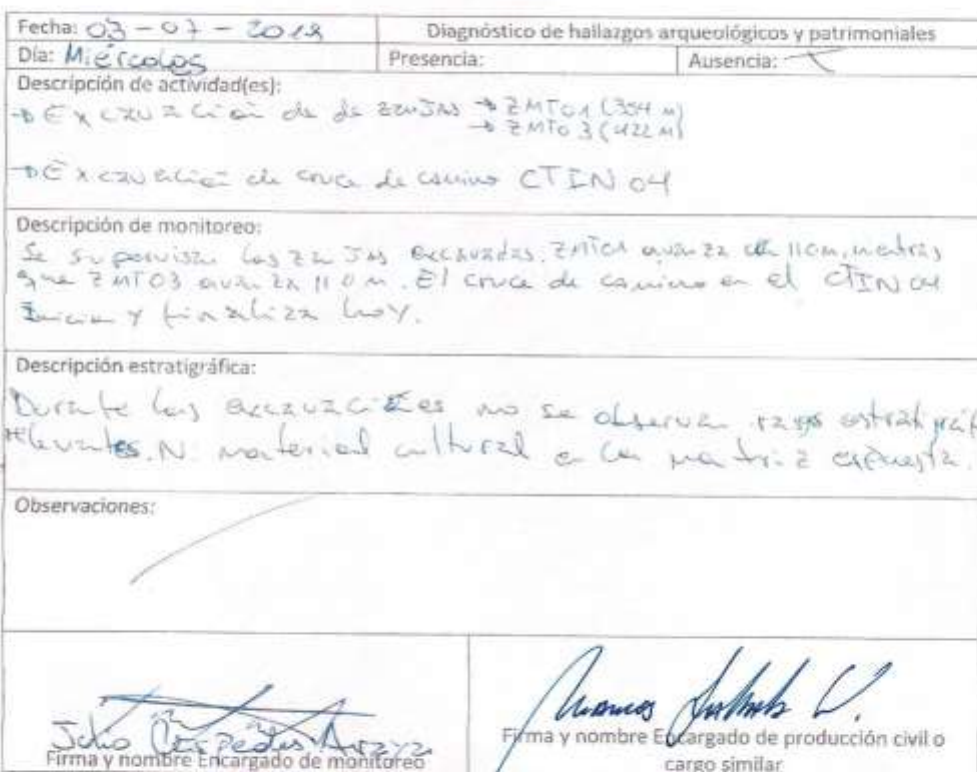 Fecha: 03-07-2019
Diagnóstico de hallazgos arqueológicos y patrimoniales
Día: Miércoles
Presencia:
Ausencia:
Descripción de actividad(es):
→ Excavación de de zanjas → ZMT01 (354 m)
→ ZMT03 (422 m)
→ Excavación de cruce de camino CTIN 04
Descripción de monitoreo:
Se supervisan las zanjas excavadas. ZMT01 avanza 110m, mientras
que ZMT03 avanza 110m. El cruce de camino en el CTIN 04
Inicia y finaliza hoy.
Descripción estratigráfica:
Durante las excavaciones no se observan rasgos estratigráf
relevantes. Ni material cultural en la matriz expuesta.
Observaciones:
Julio Céspedes Araya
Firma y nombre Encargado de monitoreo
Firma y nombre Encargado de producción civil o
cargo similar